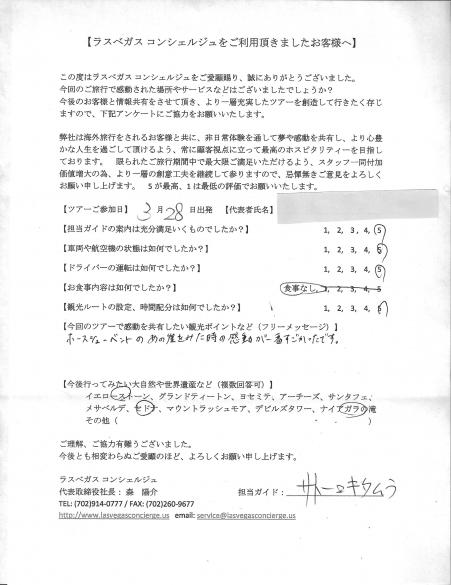 【ラスベガス コンシェルジュをご利用頂きましたお客様へ】
この度はラスベガス コンシェルジュをご愛顧賜り、誠にありがとうございました。
今回のご旅行で感動された場所やサービスなどはございましたでしょうか？
今後のお客様と情報共有をさせて頂き、より一層充実したツアーを創造して行きたく存じ
ますので、下記アンケートにご協力をお願いいたします。
弊社は海外旅行をされるお客様と共に、非日常体験を通して夢や感動を共有し、より心豊
かな人生を過ごして頂けるよう、常に顧客視点に立って最高のホスピタリティーを目指し
ております。 限られたご旅行期間中で最大限ご満足いただけるよう、スタッフ一同付加
価値増大の為、より一層の創意工夫を継続して参りますので、忌憚無きご意見をよろしく
お願い申し上げます。 5が最高、1は最低の評価でお願いいたします。
【ツアーご参加日】 3 月 28 日出発 【代表者氏名】
【担当ガイドの案内は充分満足いくものでしたか？】 1, 2, 3, 4, 5
【車両や航空機の状態は如何でしたか？】 1, 2, 3, 4, 5
【ドライバーの運転は如何でしたか？】 1, 2, 3, 4, 5
【お食事内容は如何でしたか？】 食事なし, 1, 2, 3, 4, 5
【観光ルートの設定、時間配分は如何でしたか？】 1, 2, 3, 4, 5
【今回のツアーで感動を共有したい観光ポイントなど（フリーメッセージ）】
ホースシューベントのあの崖をみた時の感動が一番すごかったです。
【今後行ってみたい大自然や世界遺産など（複数回答可）】
イエローストーン、グランドティートン、ヨセミテ、アーチーズ、サンタフェ、
メサベルデ、セドナ、マウントラッシュモア、デビルズタワー、ナイアガラの滝
その他（ ）
ご理解、ご協力有難うございました。
今後とも相変わらぬご愛顧のほど、よろしくお願い申し上げます。
ラスベガス コンシェルジュ
代表取締役社長： 森 陽介 担当ガイド： サトーロキタムラ
TEL: (702)914-0777 / FAX: (702)260-9677
http://www.lasvegasconcierge.us email: service@lasvegasconcierge.us